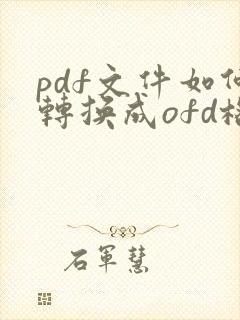 pdf文件如何
轉換成ofd格
石軍慧